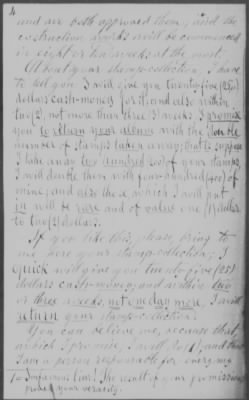 4
and are both approved them, and the
construction works will be commenced
in eight or ten weeks at the most.
About your stamp-collection, I have
to tell you I will give you twenty-five (25)
dollars cash-money for it, and also within
two (2), not more than three (3) weeks I promise
you to return your album with the double
number of stamps taken away; that is suppose
I take away two hundred 200 of your stamps,
I will double them with four hundred (400) of
mine; and also those, which I will put
in will be rare and of value one (1) dollar
to two (2) dollars.
If you like this, please, bring to
me here your stamp-collection; I
quick will give you twenty-five (25)
dollars cash-money; and within two
or three weeks, not one day more, I will
return your stamp-collection.
You can believe me, because that,
which I promise, I will
I am a person responsable for every my
1 = Infamous liar! The result of your promises
proved your veracity.